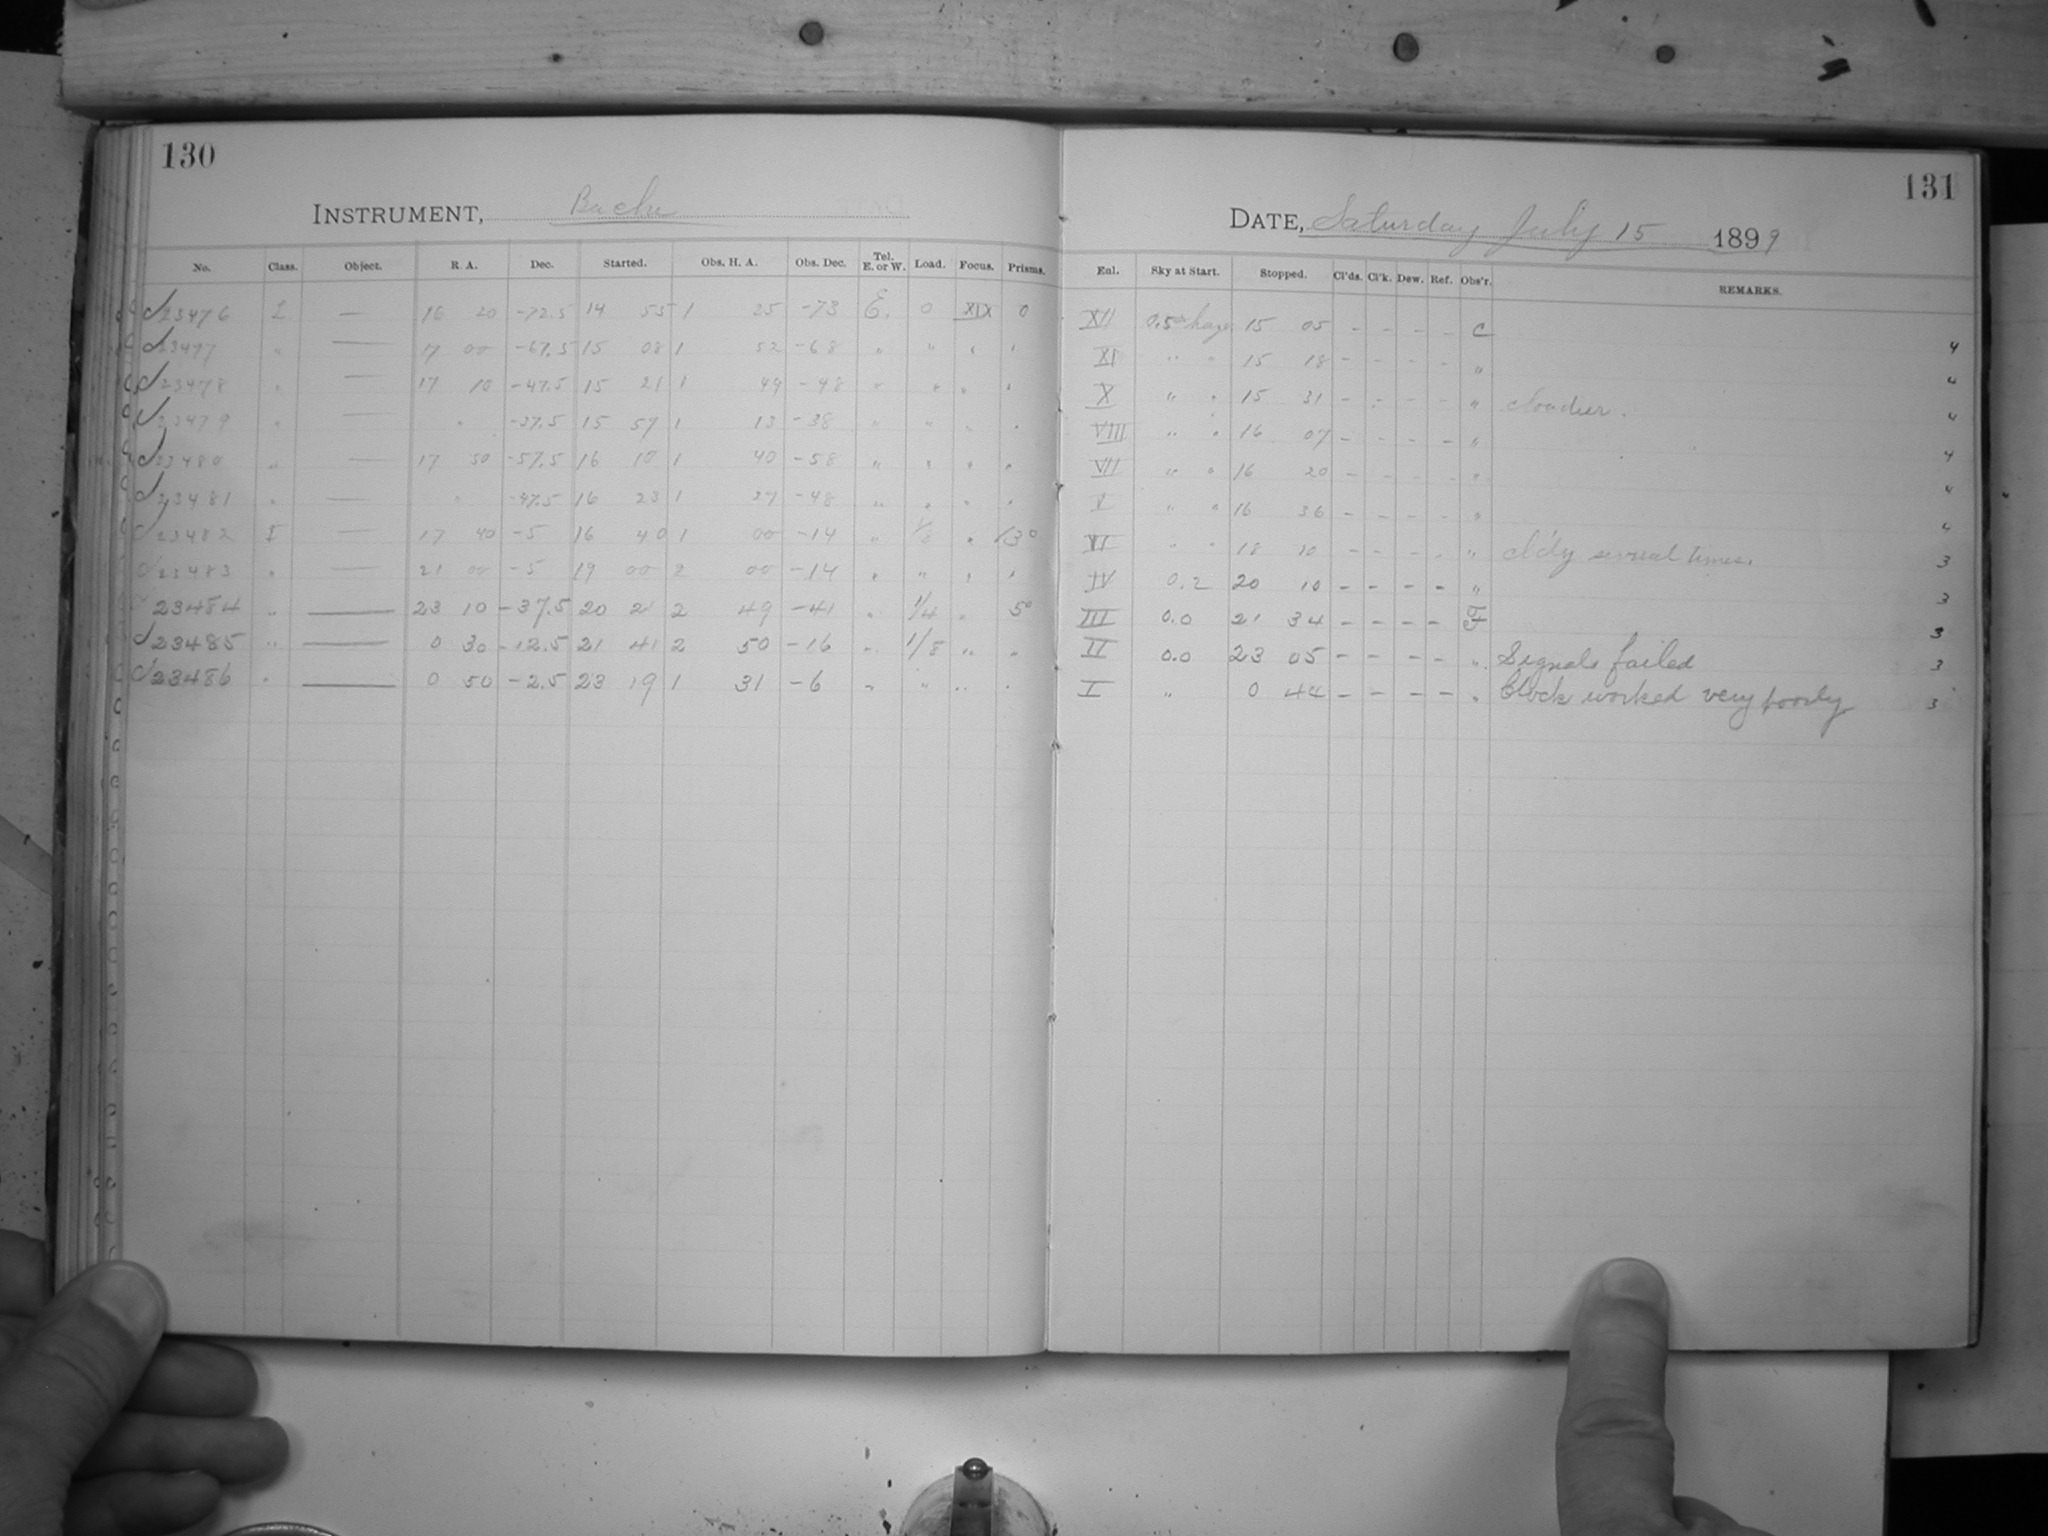 130
INSTRUMENT, Bache
No. Class. Object. R. A. Dec. Started. Obs. H. A. Obs. Dec. Tel. E. or W. Load. Focus. Prisms.
23476 L — 16 20 -72.5 14 55 1 25 -73 E. 0 XIX 0
23477 " — 17 00 -67.5 15 08 1 52 -68 " " " "
23478 " — 17 10 -47.5 15 21 1 49 -48 " " " "
23479 " — " -37.5 15 57 1 13 -38 " " " "
23480 " — 17 50 -57.5 16 10 1 40 -58 " " " "
23481 " — " -47.5 16 23 1 27 -48 " " " "
23482 I — 17 40 -5 16 40 1 00 -14 " " 13°
23483 " — 21 00 -5 19 00 2 00 -14 " " " "
23484 " — 23 10 -37.5 20 21 2 49 -41 " 1/4 " 5°
23485 " — 0 30 -12.5 21 41 2 50 -16 " 1/8 " "
23486 " — 0 50 -2.5 23 19 1 31 -6 " " " "
131
DATE, Saturday July 15 1899
Enl. Sky at Start. Stopped. Cl'ds. Cl'k. Dew. Ref. Obs'r. REMARKS.
XII 0.5 haze 15 05 - - - - C
XI " " 15 18 - - - - " 4
X " " 15 31 - - - - " cloudier. 4
VIII " " 16 07 - - - - " 4
VII " " 16 20 - - - - " 4
V " " 16 36 - - - - " 4
VI " " 18 10 - - - - " cl'dy several times. 4
IV 0.2 20 10 - - - - " 3
III 0.0 21 34 - - - - F 3
II 0.0 23 05 - - - - " Signals failed 3
I " 0 44 - - - - " Clock worked very poorly 3
3